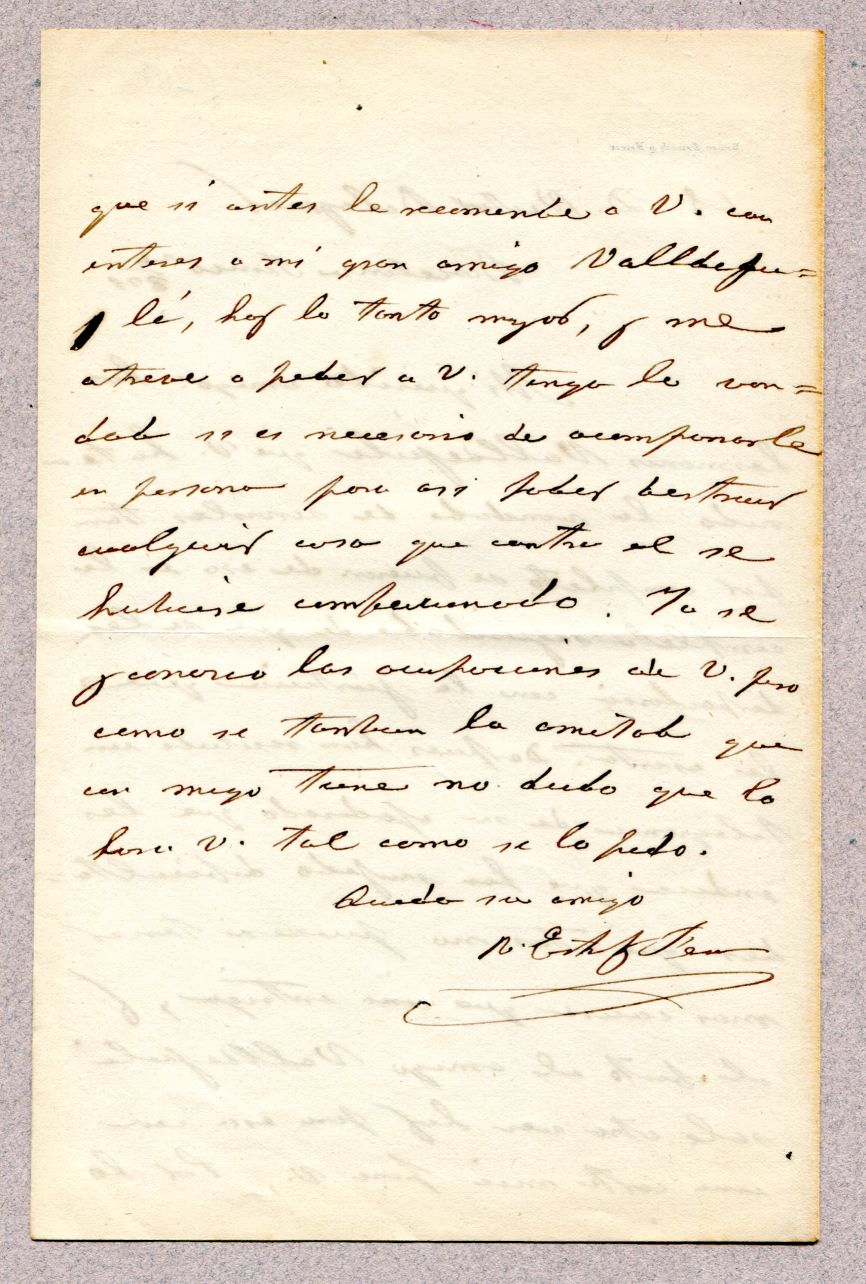 que si antes le recomende a V. con
interes a mi gran amigo Valldepu=
lé, hoy lo tanto mayor, y me
atreve a peder a V. tenga la von=
dad si es necesario de acompanarle
en persona para asi poder destruir
cualquier cosa que contra el se
hubiese emparenado. Ya se
y conosco las ocupaciones de V. pero
como se tanbien la amitad que
con migo tiene no dudo que lo
hara V. tal como se lo pedo.
Queda su amigo
R. Estf